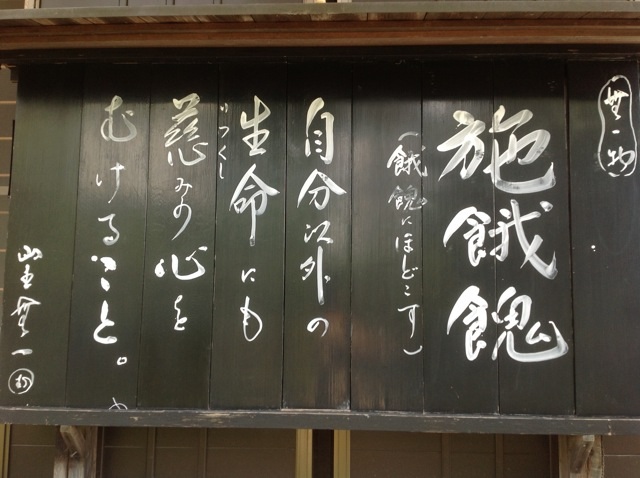 無一物
施餓餽
(餓餽にほどこす)
自分以外の
生命にも
いつくし
慈みの心を
むけること。
山主 無一 物